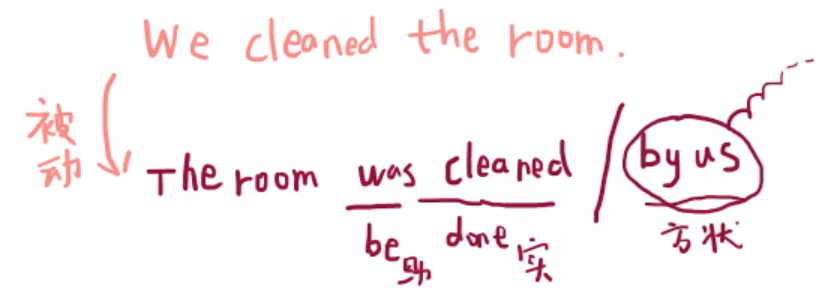 We cleaned the room.
被动
The room was cleaned / by us
be助 done实 方状